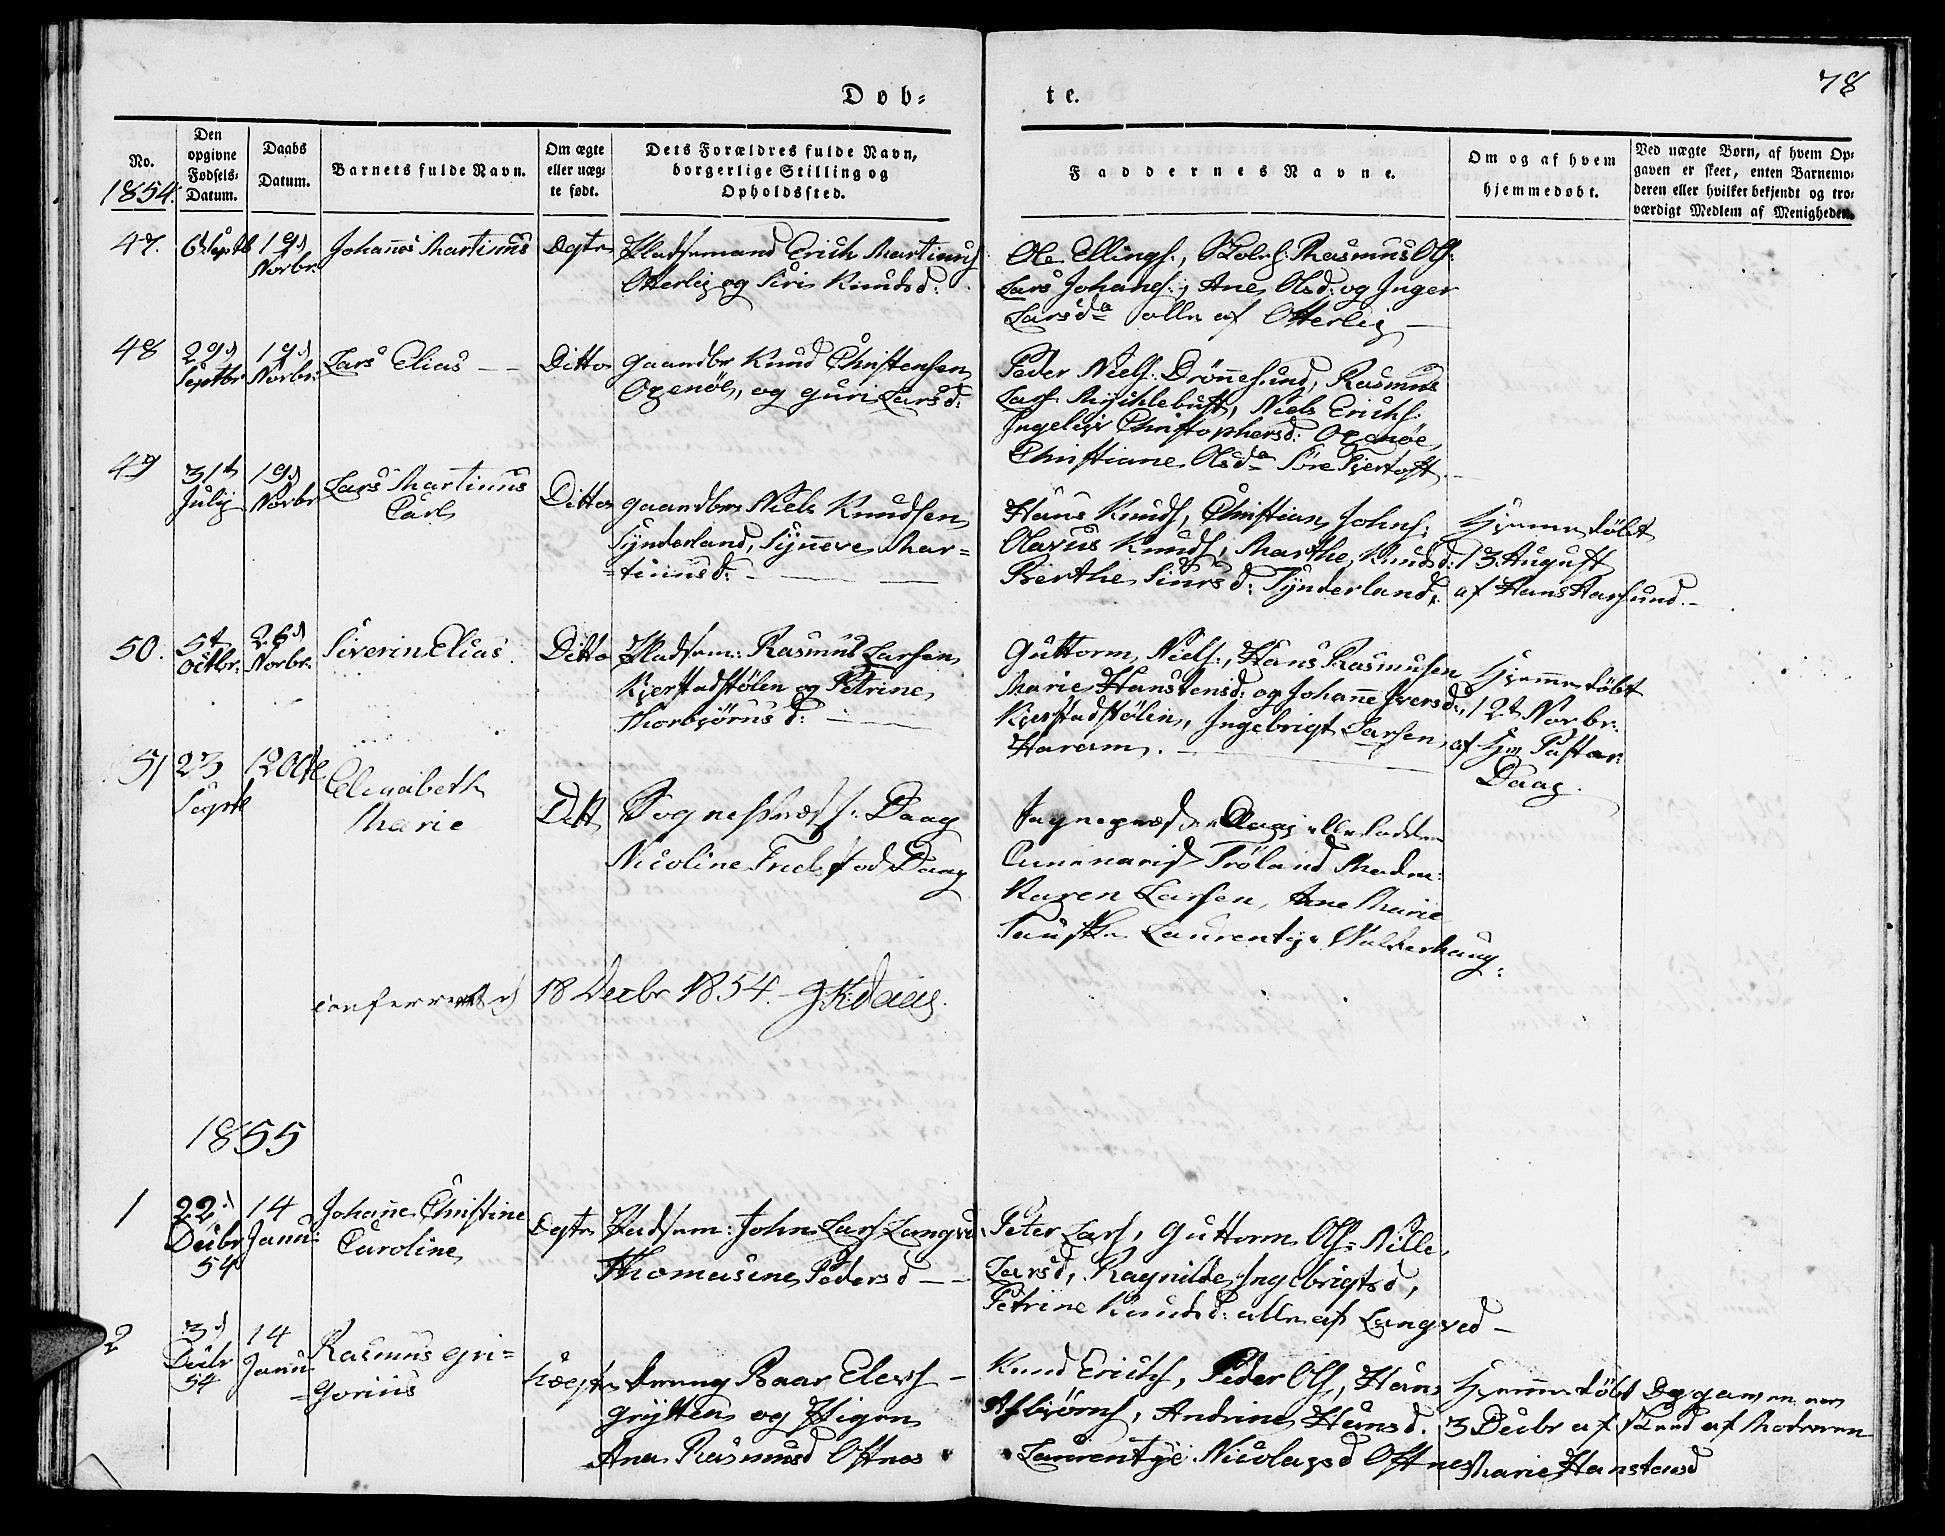 Døb=
te.
78
No.
1854.
Den
opgivne
Fødsels-
Datum.
Daabs
Datum.
Barnets fulde Navn.
Om ægte
eller uæg-
te født.
Dets Forældres fulde Navn,
borgerlige Stilling og
Opholdssted.
Faddernes Navne.
Om og af hvem
hjemmedøbt.
Ved uægte Børn, af hvem Op-
gaven er skeet, enten Barnemo-
deren eller hvilket bekjendt og tro-
værdigt Medlem af Menigheden.
47.
19d
Novbr.
Johannes Martinus
Pladsemand Erich Martinus
Otterlei og Siri Knudsd:
Ole Ellings., Rasmus Ols.
Lars Johans., Ane Olsd: og Inger
Larsda alle af Otterlei
48
29d
Septbr.
19d
Novbr.
Lars Elias
Ditto
Gaardbr Knud Christensen
Oxenöe, og Guri Larsd:
Peder Niels. Drönnesund, Rasmus
Lars. Myhlebust, Niels Erichs.
Christophersd: Oxenöe
Christiane Olsda Söre Fjertoft.
49
31t
July
19d
Novbr
Lars Martinus
Carl
Ditto
Gaardbr Niels Knudsen
Synderland, Synneve Mar=
=tinusd:
Hans Knuds, Christian Johns.
Olavus Knuds, Marthe Knudsd:
Berthe Siursd: Synderland.
Hjemmedöbt
13 August
af Hans Harsund.
50.
5t
octbr.
26d
Novbr.
Siverin Elias
Ditto
Pladsem: Rasmus Larsen
Kjerstadstölen og Petrine
Thorbjörnsd:
Guttorm Niels., Hans Rasmusen
Marie Hanstensd: og Johanne Iversd:
Kjerstadstölen, Ingebrigt Larsen
Haram.
Hjemmedöbt
12t Novbr.
af Hr Pastor
Daae.
51
23
Septe
12
Elisabeth
Marie
Ditt
Sognepræst: Daae
Nicoline Daae
Daae
Tröland Madm:
Karen Larsen, Ane Marie
Laurentze Walderhaug.
conferrert d 18 Decbr 1854. JKDaae.
1855
1
22d
Decbr
54
14
Janu:
Johanne Christine
Caroline
Pladsem: John Lars Langved
Thomasine Pedersd
Peter Lars, Guttorm Ols. Nille
Larsd, Ragnilde Ingebrigtsd,
Petrine Knudsd: alle af Langved
2
3d
Decbr
54
14
Janu
Rasmus Gri=
=gorius
Uægte
Dreng Paar Elevs
Grytten og Pigen
Ane Rasmusd Oftnes
Knud Erichs, Peder Ols, Hans
Asbjörns, Andrine Hansd.
Laurentze Nicolaysd Oftnes
Hjemmedöbt
3 Decbr af
Marie Hanstensd
Opgaven er
skeed af Moderen